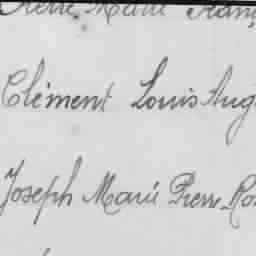 Pierre Marie Franç
Clément Louis Aug
Joseph Marie Pierre Ro